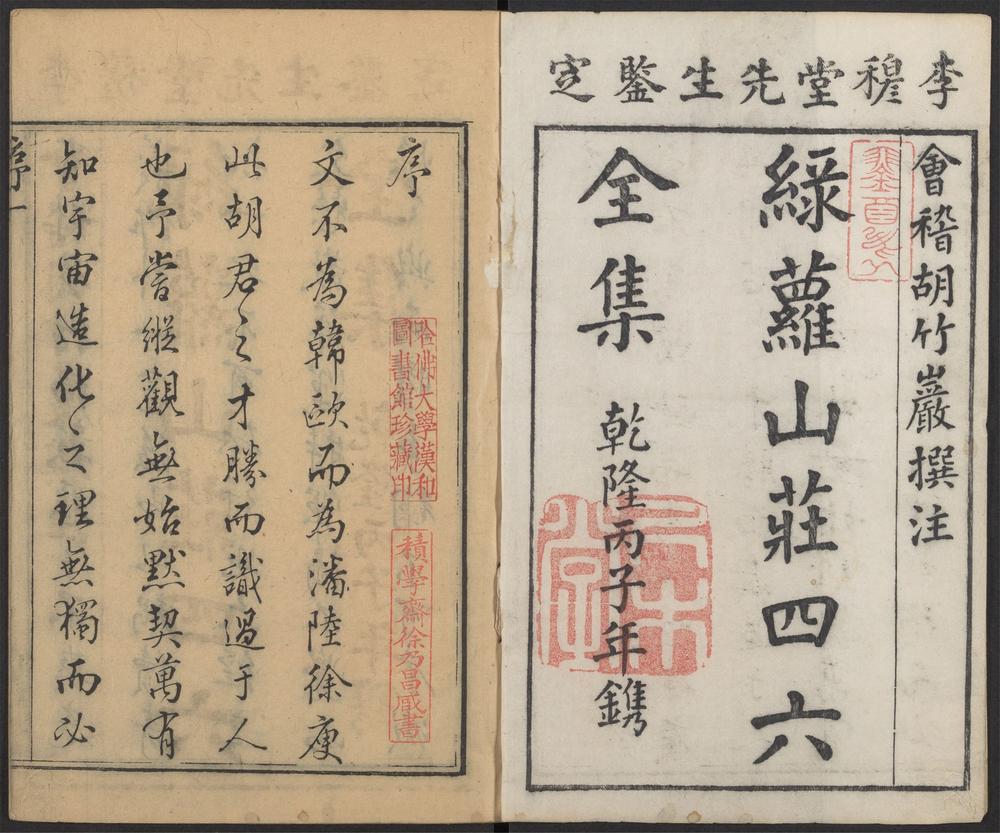 李穆堂先生鑒定
會稽胡竹巖撰注
綠蘿山莊四六
全集
乾隆丙子年鐫
序
文不為韓歐而為潘陸徐庾
此胡君之才勝而識過于人
也予嘗縱觀無始默契萬有
知宇宙造化之理無獨而必
序一
哈佛大學漢和
圖書館珍藏印
積學齋徐乃昌臧書